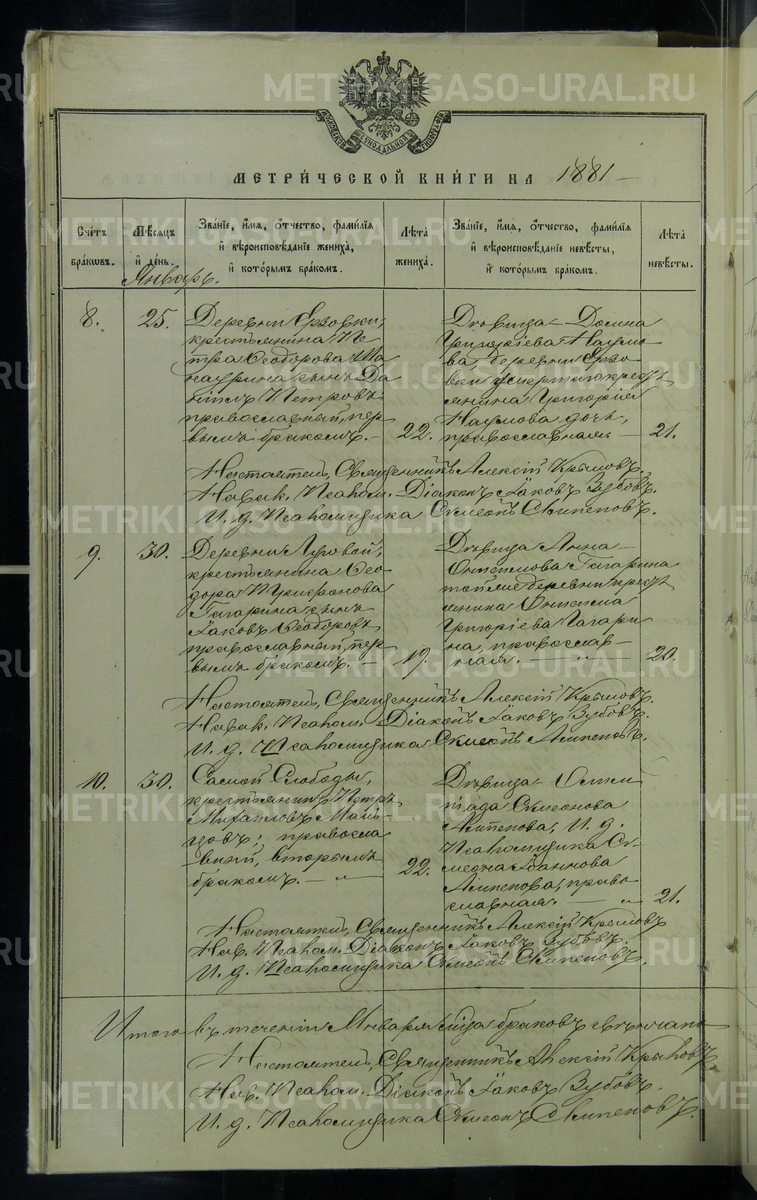 МЕТРИЧЕСКОЙ КНИГИ НА 1881
Счетъ браковъ.
Мѣсяцъ и день.
Званіе, имя, отчество, фамилія и вѣроисповѣданіе жениха, и которымъ бракомъ.
Лѣта жениха.
Званіе, имя, отчество, фамилія и вѣроисповѣданіе невѣсты, и которымъ бракомъ.
Лѣта невѣсты.
Январь.
8.
25.
Деревни
крестьянина Пе
тра Ѳеодорова
сынъ Да
Петровъ
православный, пер
вымъ бракомъ.
22.
Дѣвица Домна
Григорьева Наумо
ва, деревни
кресть
янина Григорія
Наумова дочь,
православная.
21.
Настоятель, Священникъ Алексій Крыловъ.
Псалом. Діаконъ Іаковъ Зубовъ.
И. д. Псаломщика Симеонъ
9.
30.
Деревни Луговой,
крестьянина Ѳео
дора Трифонова
Гагарина сынъ
Іаковъ Ѳеодоровъ
православный, пер
вымъ бракомъ.
19.
Дѣвица Анна
Гагарина
той же деревни кресть
янина
Григоріева Гагари
на, православ
ная.
20.
Настоятель, Священникъ Алексій Крыловъ.
Псалом. Діаконъ Іаковъ Зубовъ.
И. д. Псаломщика Симеонъ
10.
30.
Самой Слободы,
крестьянинъ Петръ
Михайловъ Маль
цовъ; правосла
вный, вторымъ
бракомъ.
22.
Дѣвица Олим
піада Симеонова
И. д.
Псаломщика Си
меона Іоаннова
право
славная.
21.
Настоятель, Священникъ Алексій Крыловъ
Псалом. Діаконъ Іаковъ Зубовъ.
И. д. Псаломщика Симеонъ
Итого въ теченіи Января м-ца браковъ свѣнчано
Настоятель, Священникъ Алексій Крыловъ
Псалом. Діаконъ Іаковъ Зубовъ.
И. д. Псаломщика Симеонъ
METRIKI.GASO-URAL.RU